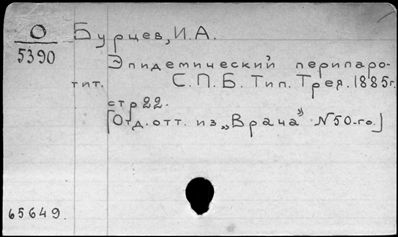 О
5390
Бурцев, И.А.
Эпидемический перипаро-
тит. С.П.Б. Тип. Трея. 1885г.
стр 22.
[Отд. отт. из „Врача" N50-го.]
65649.